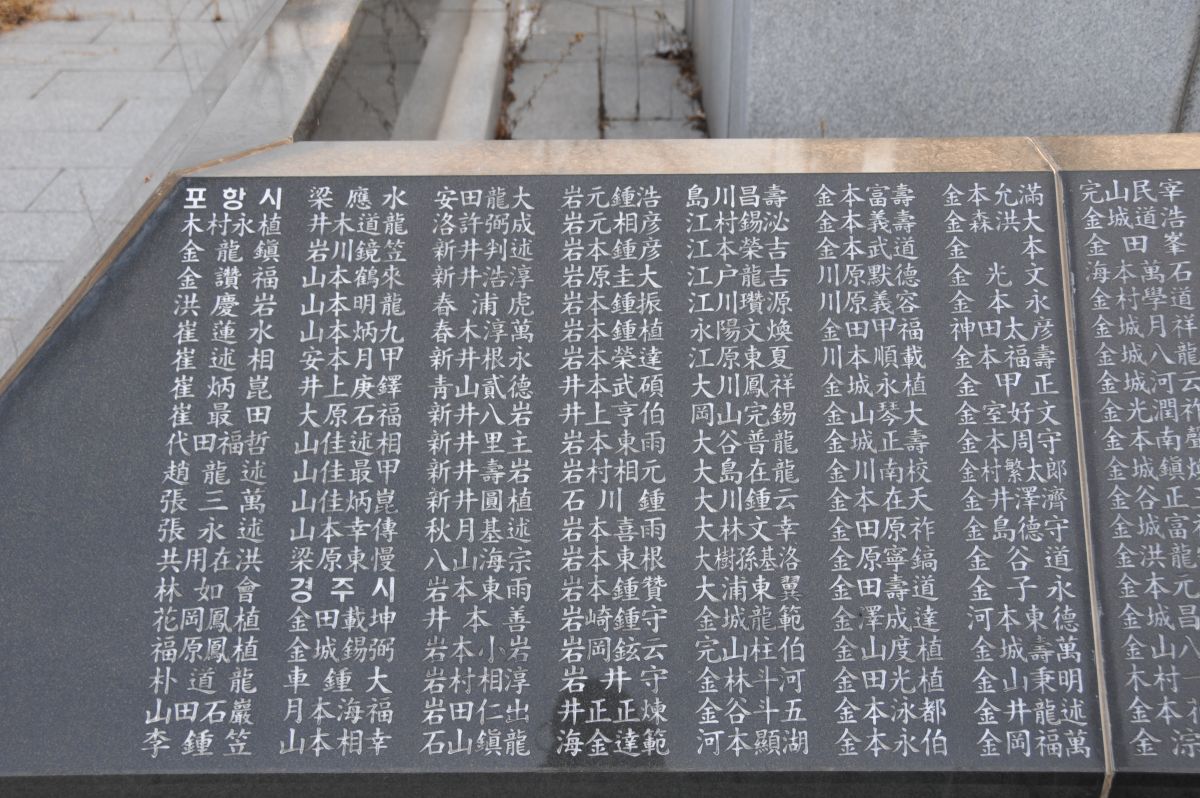 포항시
木村永植
金龍鎭
金讚福
洪慶岩
崔蓮水
崔述相
崔炳崑
崔最田
代田福哲
趙龍述
張三萬
張永述
共用在洪
林如會
花岡鳳植
福原鳳植
朴道龍
山田石巖
李鍾笠
梁應水
井木道龍
岩川鏡笠
山本鶴來
山本明龍
山本炳九
安本月甲
井上庚鐸
大原石福
山佳述相
山佳最甲
山佳炳崑
山本幸傳
梁原東慢
경주시
金田載坤
金城錫弼
車鍾大
月本海福
山本相幸
安田龍大
洛許弼成
新井判述
新井浩淳
春浦虎
春木淳萬
新井根永
青山貳德
新井八岩
新井里主
新井壽岩
新井圓植
秋月基述
八山海宗
岩本東雨
井本善
岩本小岩
岩村相淳
岩田仁出
石山鎭龍
岩元鍾浩
岩元相彦
岩本鍾彦
岩原圭大
岩本鍾振
岩本鍾植
岩本榮達
井本武碩
井上亨伯
岩本東雨
岩村相元
石川鍾
岩本喜雨
岩本東根
岩本鍾贊
岩崎鍾守
岩岡鉉云
岩井守
井正正煉
海金達範
島川昌壽
江村錫泌
江本榮吉
江戶龍吉
江川瓚源
永陽文煥
江原東夏
大川鳳祥
岡山完錫
大谷普龍
大島在龍
大川鍾云
大林文幸
大樹孫基洛
大浦東翼
金城龍範
完山柱伯
金林斗河
金谷斗五
河本顯湖
金本富壽
金本義壽
金本武道
川原默德
川原義容
金田甲福
川本順載
金城永植
金山琴大
金城正壽
金川南校
金本在天
金田原祚
金原寧鎬
金田壽道
金澤成達
金山度植
金田光植
金本泳都
金本永伯
金本允滿
金森洪大
金本
金光文
金本永
神田太彦
金本福壽
金甲正
金室好文
金本周守
金村繁太郎
金井澤濟
金島德守
金谷道
金子永
河本東德
金城壽萬
金山秉明
金井龍述
金岡福萬
完山民宰
金城道浩
金田峯
海本萬石
金村學道
金城月祥
金城八龍
金城河云
金光潤
金本南
金城鎭
金谷正
金城富
金洪龍
金本元
金城昌
金山八
木村
金本
金淙